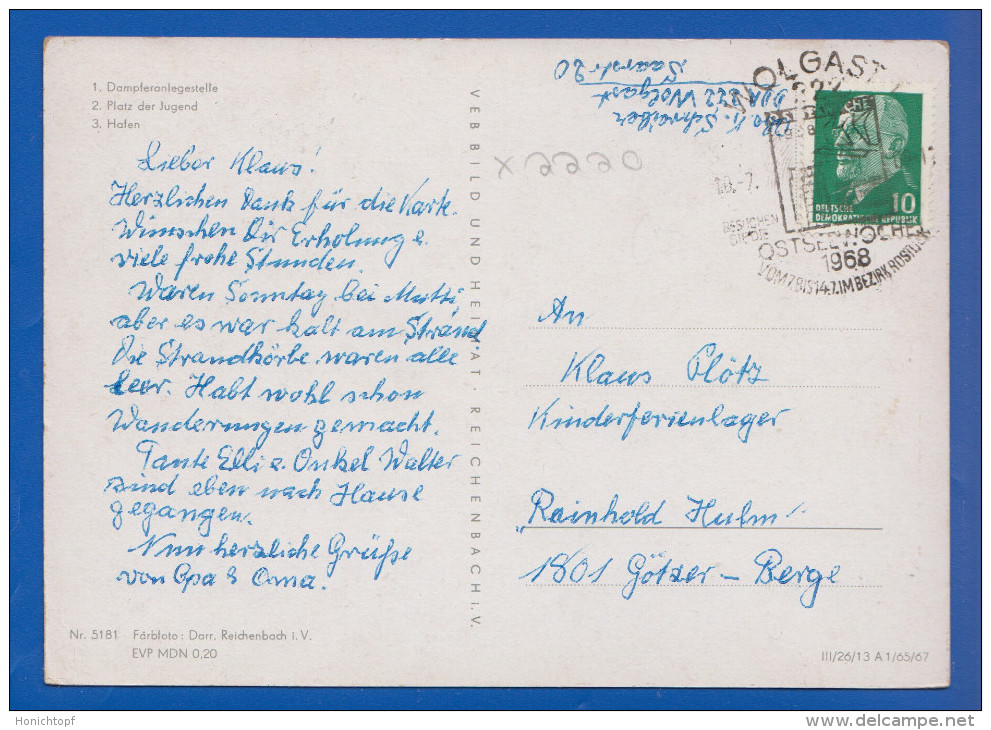 1. Dampferanlegestelle
2. Platz der Jugend
3. Hafen
Lieber Klaus!
Herzlichen Dank für die Karte.
Wünschen Dir Erholung u.
viele frohe Stunden.
Waren Sonntag bei Mutti,
aber es war kalt am Strand.
Die Strandkörbe waren alle
leer. Habt wohl schon
Wanderungen gemacht.
Tante Elli u. Onkel Walter
sind eben nach Hause
gegangen.
Nun herzliche Grüße
von Opa & Oma.
Nr. 5181 Farbfoto: Darr, Reichenbach i. V.
EVP MDN 0,20
VEB BILD UND HEIMAT · REICHENBACH I. V.
K. Schreiber
DDR 222 Wolgast
Saarstr. 20
x2220
WOLGAST 1
222
10.-7.
BESUCHEN
SIE DIE
OSTSEEWOCHE
1968
VOM 7. BIS 14.7. IM BEZIRK ROSTOCK
10
DEUTSCHE
DEMOKRATISCHE REPUBLIK
An
Klaus Plötz
Kinderferienlager
„Rainhold Hulm“
1801 Götzer – Berge
III/26/13 A 1/65/67
Honichtopf
http://www.delcampe.net